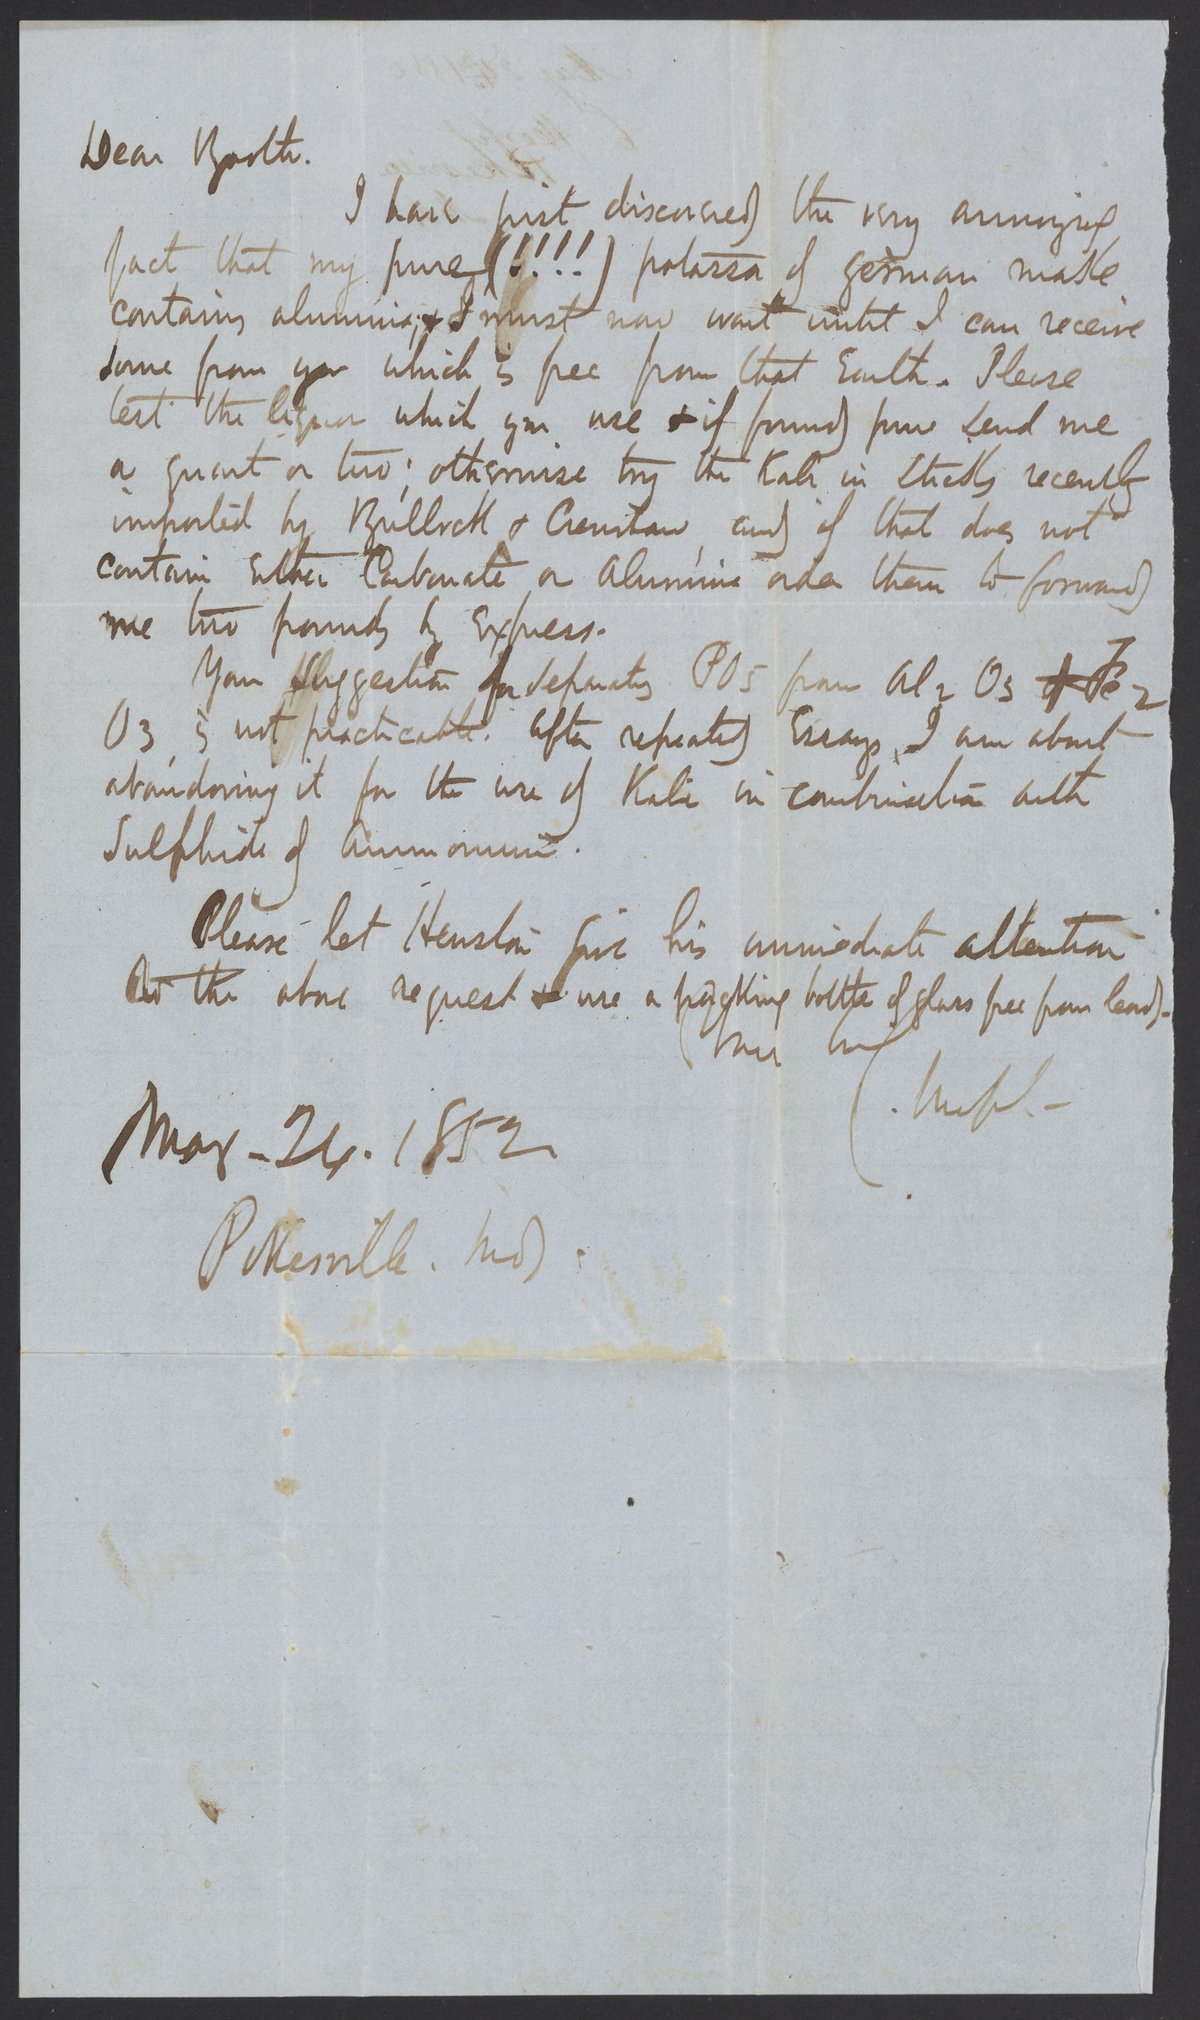 Dear Booth.
I have just discovered the very annoying
fact that my pure (!!!!) potassa of german make
contains alumina; & I must now wait until I can receive
some from you which is free from that Earth. Please
test the liquor which you use & if found pure send me
a quart or two; otherwise try the Kali in Sticks recently
imported by Bullock & Crenshaw, and if that does not
contain Either Carbonate or Alumina order them to forward
me two pounds by Express.
Your Suggestion for separating PO5 from Al2 O3 & Fe2
O3, is not practicable. After repeated Essays, I am about
abandoning it for the use of Kali in combination with
Sulphide of Ammonium.
Please let Henston give his immediate attention
to the above request & use a packing bottle of glass free from lead.
Your
May - 24. 1852
Pikesville. Md.